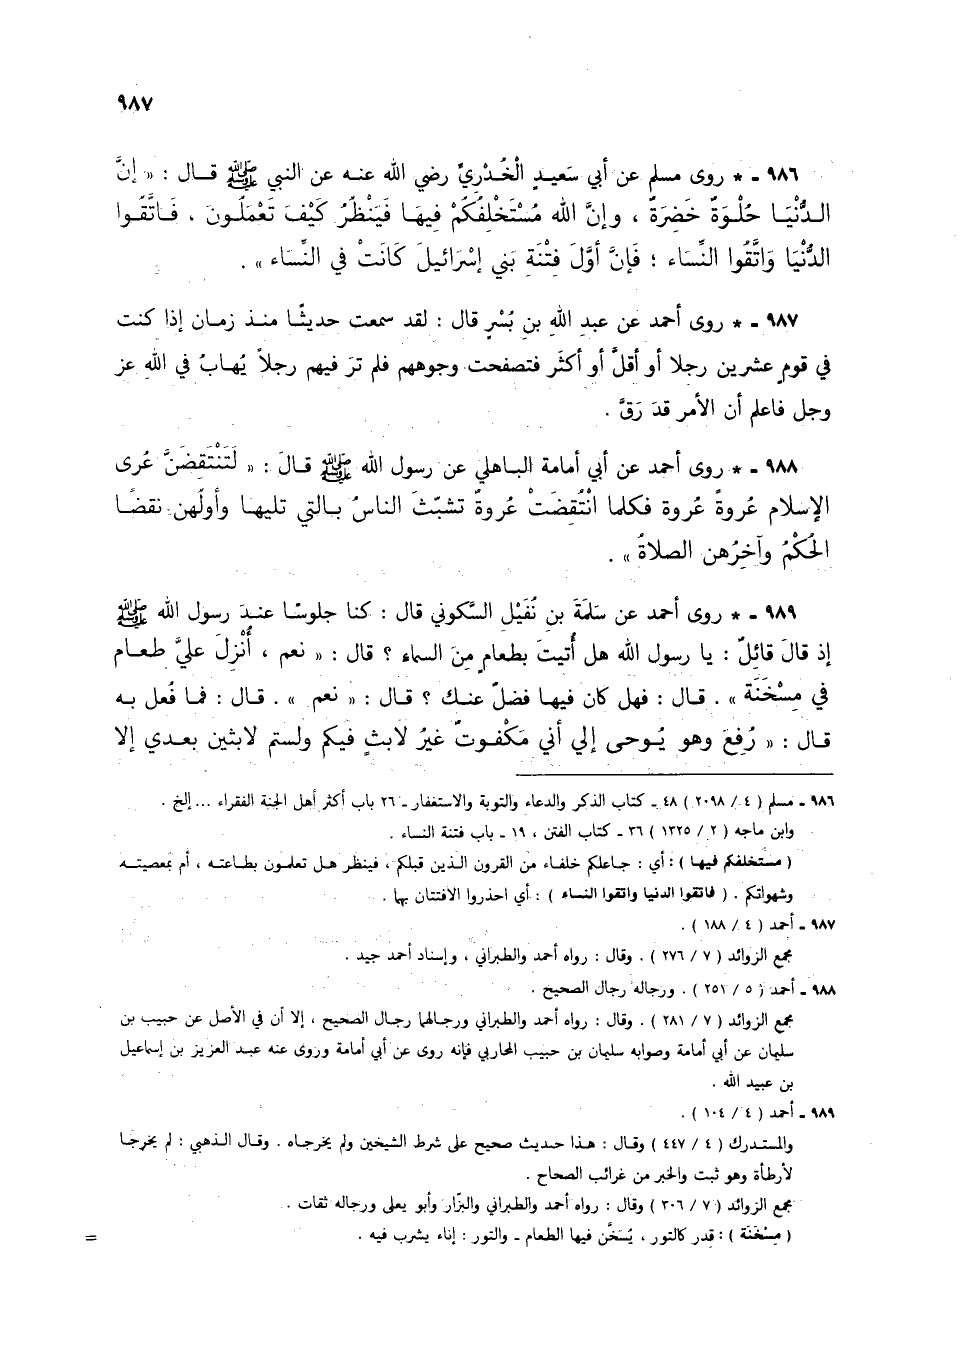 ٩٨٧
٩٨٦ ـ * روى مسلم عن أبي سَعيدٍ الْخُدْرِيِّ رضي الله عنه عن النبي ﷺ قال : « إنَّ
الدُّنْيَا حُلْوَةٌ خَضِرَةٌ ، وإنَّ الله مُسْتَخْلِفُكُمْ فِيهَا فَيَنْظُرُ كَيْفَ تَعْمَلُونَ ، فَاتَّقُوا
الدُّنْيَا وَاتَّقُوا النِّسَاء ؛ فَإنَّ أوَّلَ فِتْنَةِ بَني إسْرَائيلَ كَانَتْ في النِّسَاء » .
٩٨٧ ـ * روى أحمد عن عبدِ الله بنِ بُسْرٍ قال : لقد سمعت حديثًا منذ زمان إذا كنت
في قومٍ عشرين رجلا أو أقلَّ أو أكثَر فتصفحت وجوههم فلم ترَ فيهم رجلاً يُهابُ في اللهِ عز
وجل فاعلم أن الأمر قدَ رَقَّ .
٩٨٨ ـ * روى أحمد عن أبي أمامة الباهلي عن رسول الله ﷺ قالَ : « لَتَنْتَقِضَنَّ عُرى
الإسلام عُروةً عُروة فكلما انْتُقِضَتْ عُروةٌ تشبّثَ الناسُ بالتي تليها وأولَهن نقضًا
الحُكْمُ وآخِرُهن الصلاةُ » .
٩٨٩ ـ * روى أحمد عن سَلمَةَ بن نُفَيْل السَّكوني قال : كنا جلوسًا عندَ رسول الله ﷺ
إذ قالَ قائلٌ : يا رسول الله هل أُتيتَ بطعامٍ مِنَ السماء ؟ قال : « نعم ، أُنْزِلَ عليَّ طعام
في مِسْخَنَة » . قال : فهل كان فيها فضلٌ عنك ؟ قال : « نعم » . قال : فما فُعل به
قال : « رُفِعَ وهو يُوحى إلي أني مَكْفوتٌ غيرُ لابثٍ فيكم ولستم لابثين بعدي إلا
٩٨٦ ـ مسلم ( ٤ / ٢٠٩٨ ) ٤٨ ـ كتاب الذكر والدعاء والتوبة والاستغفار ـ ٢٦ باب أكثر أهل الجنة الفقراء ... إلخ .
وابن ماجه ( ٢ / ١٣٢٥ ) ٣٦ ـ كتاب الفتن ، ١٩ ـ باب فتنة النساء .
( مستخلفكم فيها ) : أي : جاعلكم خلفاء من القرون الذين قبلكم ، فينظر هل تعلمون بطاعته ، أم بمعصيته
وشهواتكم . ( فاتقوا الدنيا واتقوا النساء ) : أي احذروا الافتتان بها .
٩٨٧ ـ أحمد ( ٤ / ١٨٨ ) .
مجمع الزوائد ( ٧ / ٢٧٦ ) . وقال : رواه أحمد والطبراني ، وإسناد أحمد جيد .
٩٨٨ ـ أحمد ( ٥ / ٢٥١ ) . ورجاله رجال الصحيح .
مجمع الزوائد ( ٧ / ٢٨١ ) . وقال : رواه أحمد والطبراني ورجالهما رجال الصحيح ، إلا أن في الأصل عن حبيب بن
سليمان عن أبي أمامة وصوابه سليمان بن حبيب المحاربي فإنه روى عن أبي أمامة وروى عنه عبد العزيز بن إسماعيل
بن عبيد الله .
٩٨٩ ـ أحمد ( ٤ / ١٠٤ ) .
والمستدرك ( ٤ / ٤٤٧ ) وقال : هذا حديث صحيح على شرط الشيخين ولم يخرجاه . وقال الذهبي : لم يخرجا
لأرطأة وهو ثبت والخبر من غرائب الصحاح .
مجمع الزوائد ( ٧ / ٣٠٦ ) وقال : رواه أحمد والطبراني والبزّار وأبو يعلى ورجاله ثقات .
( مِسْخَنَة ) : قِدر كالتور ، يُسَخَّن فيها الطعام ـ والتور : إناء يشرب فيه .
=